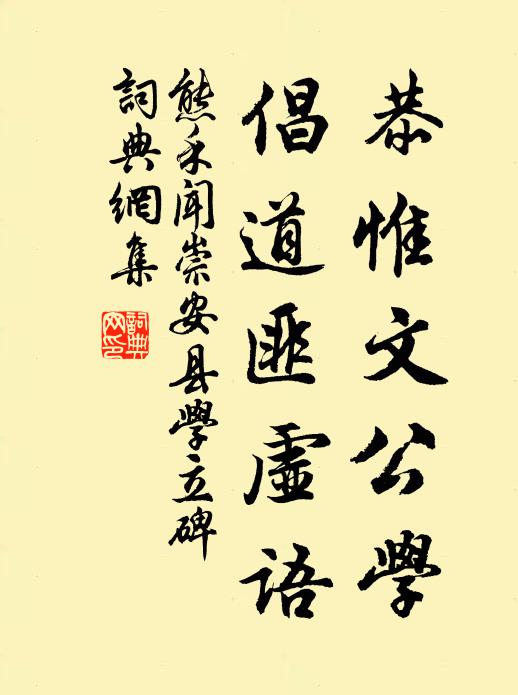 恭惟文公學
倡道匪虛語
熊禾聞崇安县學立碑
詞典網集
詞典網印